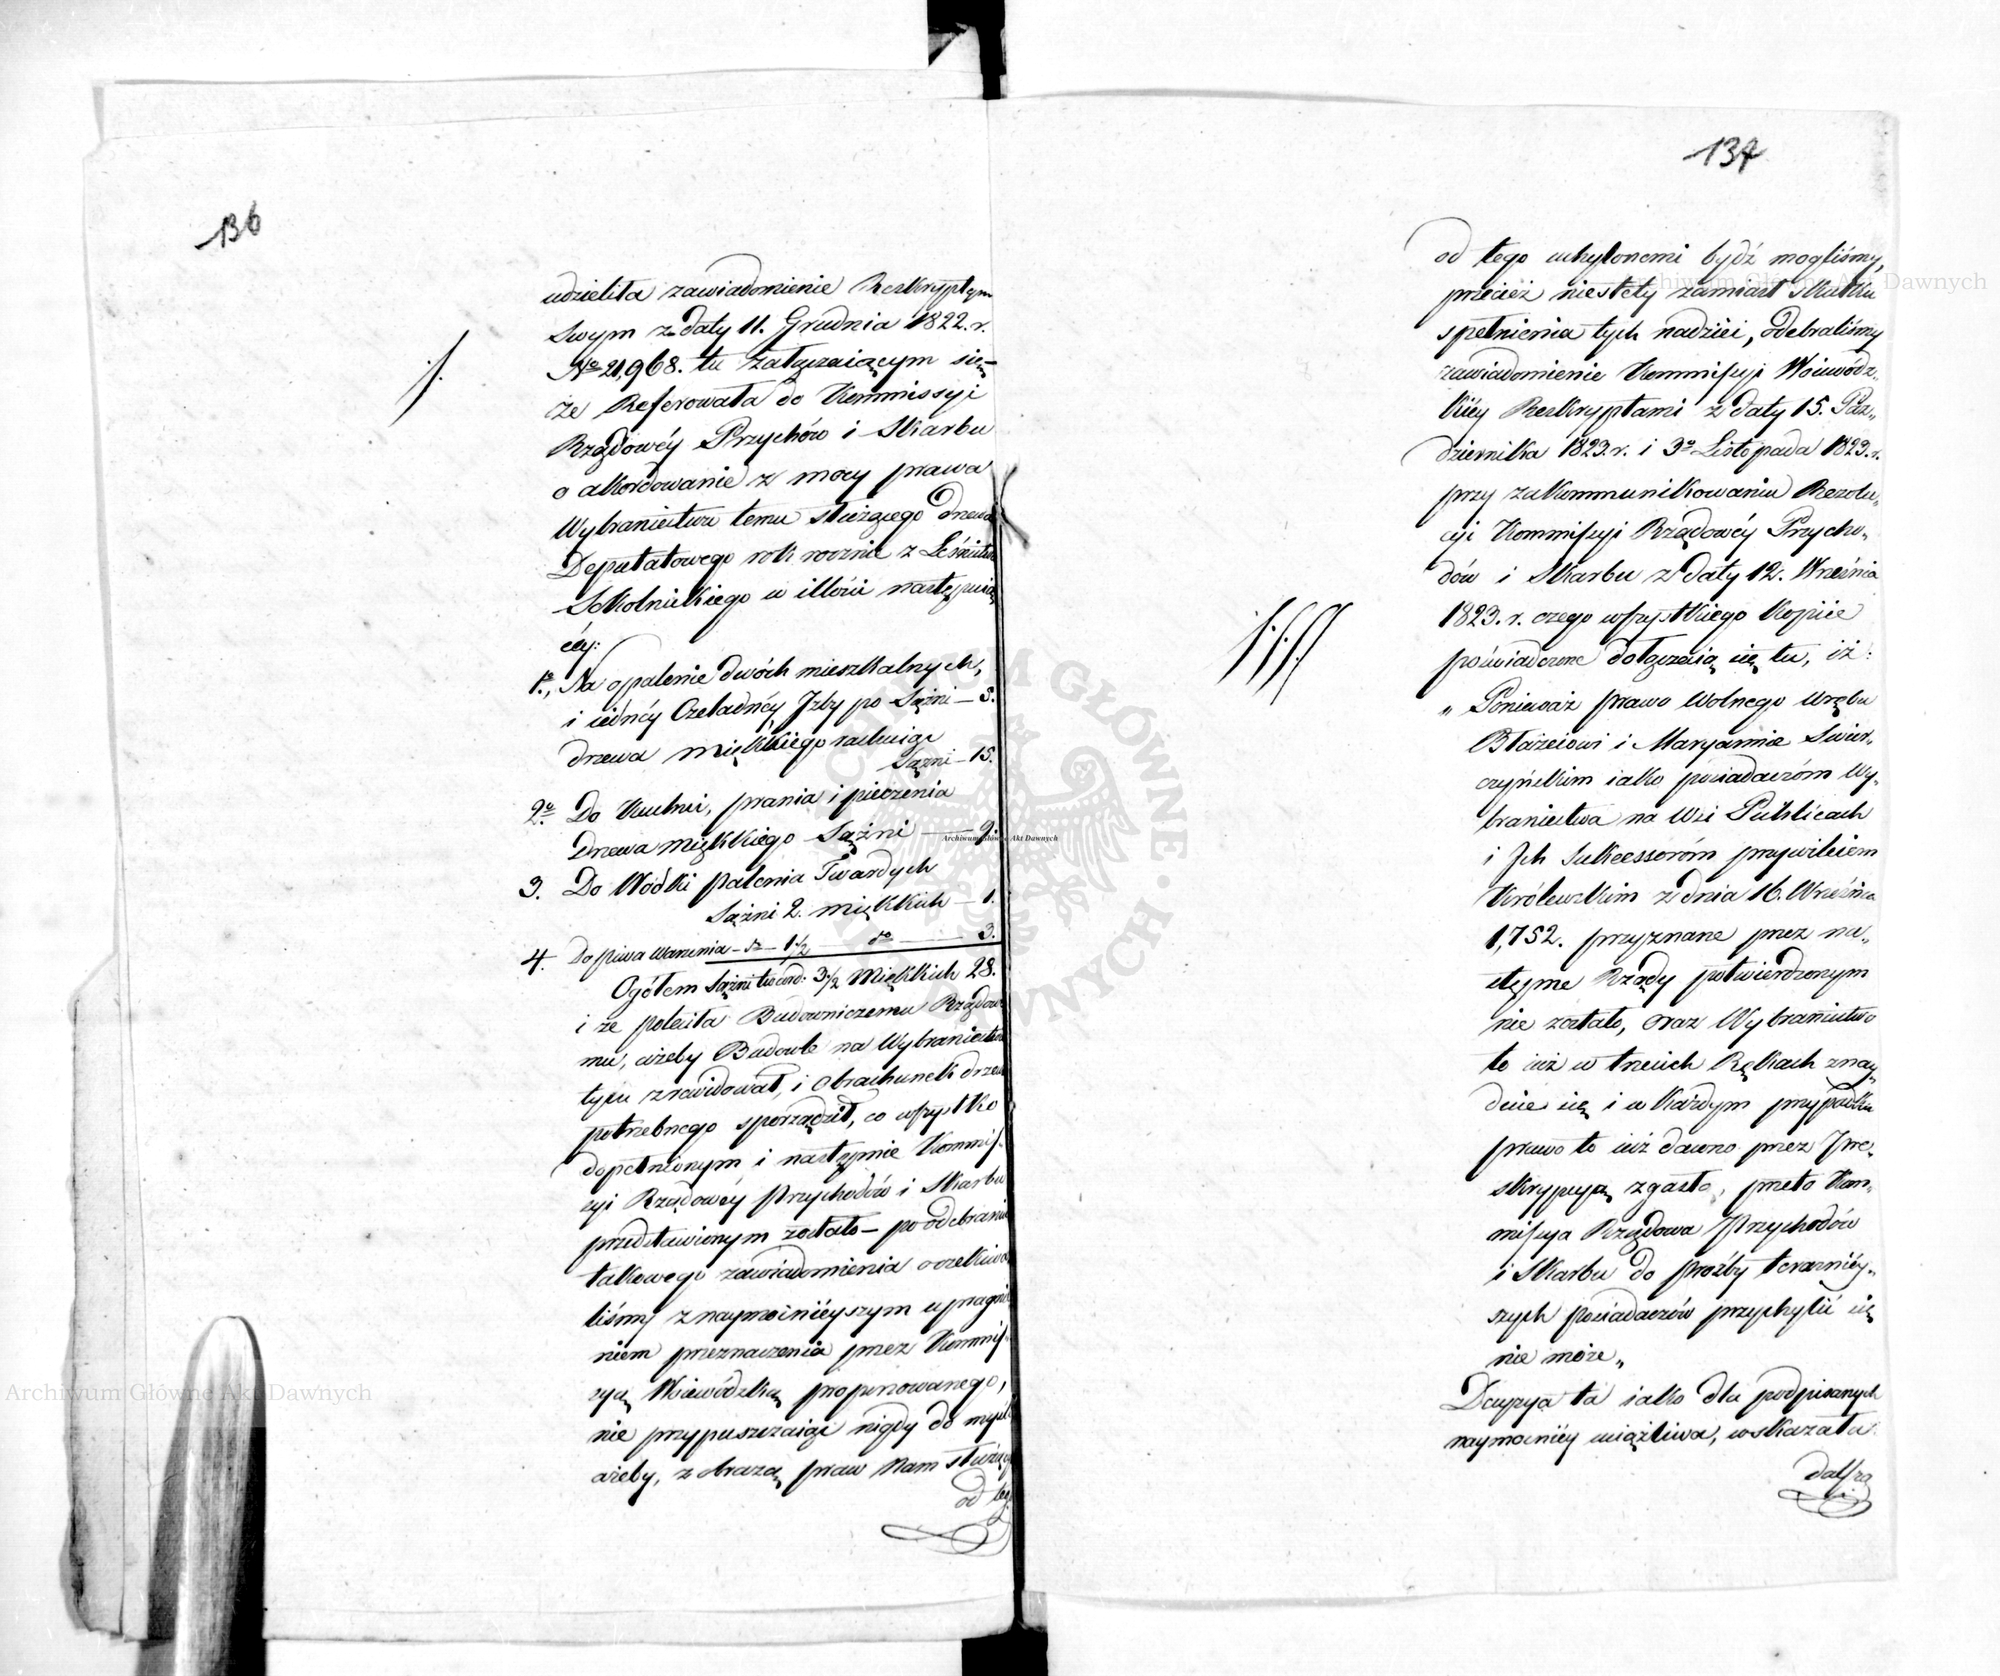 136
udzieliła zawiadomienie Reskryptem
Swym z daty 11. Grudnia 1822. r.
No 21,968. tu załączaiącym się
że Referowała do Kommissyi
Rządowéy Przychów i Skarbu
o akordowanie z mocy prawa
Wybraniectwu temu służącego drzewa
Deputatowego rok rocznie z Leśnictwa
Sokolnickiego w illości następuią
céy:
1o., Na opalenie dwóch mieszkalnych,
i iednéy Czeladnéy Izby po Sążni — 5.
drzewa miękkiego rachuiąc
Sążni — 15.
2o. Do Kuchni, prania i pieczenia
Drzewa miękkiego Sążni — 9.
3. Do Wódki palenia Twardych
Sążni 2. miękkich — 1.
4. Do piwa Warzenia — do — 1½ — do — 3.
Ogółem Sążni tward: 3½ Miękkich 28.
i że poleciła Budowniczemu Rządowe
mu, ażeby Budowle na Wybraniectwie
tym zrewidował, i obrachunek drzewa
potrzebnego sporządził, co wszystko
dopełnionym, i następnie Kommis-
syi Rządowéy Przychodów i Skarbu
przedstawionym zostało — po odebraniu
takowego zawiadomienia oczekiwa
liśmy z naymocnieyszym upragnie
niem przeznaczenia przez Kommis-
syą Woiewódzką proponowanego,
nie przypuszczaiąc nigdy do myśli
ażeby, z obrazą praw Nam służący
od teg
137
od tego uchylonemi bydź mogliśmy,
przecież niestety zamiast skutku
spełnienia tych nadziei, odebraliśmy
zawiadomienie Kommissyi Woiewódz„
kiéy Reskryptami z daty 15. Paź„
dziernika 1823. r. i 3o Listopada 1823. r.
przy zakommunikowaniu Rezolu„
cyi Kommissyi Rządowéy Przycho„
dów i Skarbu z daty 12. Września
1823. r. czego wszystkiego Kopiie
poświadczone dołączaią się tu, iż:
„ Ponieważ prawo Wolnego Wrębu
Błażeiowi i Maryannie Swier„
czyńskim iako posiadaczóm Wy„
braniectwa na Wsi Publicach
i Ich Sukcessoróm przywileiem
Królewskim z dnia 16. Września
1,752. przyznane przez na„
stępne Rządy potwierdzonym
nie zostało, oraz Wybraniectwo
to iuż w trzecich Rękach znay„
duie się i w Każdym przypadku
prawo to iuż dawno przez Pre„
skrypcyą zgasło, przeto Kom„
missya Rządowa Przychodów
i Skarbu do proźby teraznièy„
szych posiadaczów przychylić się
nie może„
Decyzya ta iako dla podpisanych
naymocniéy uciążliwa, wskazała
dalszą